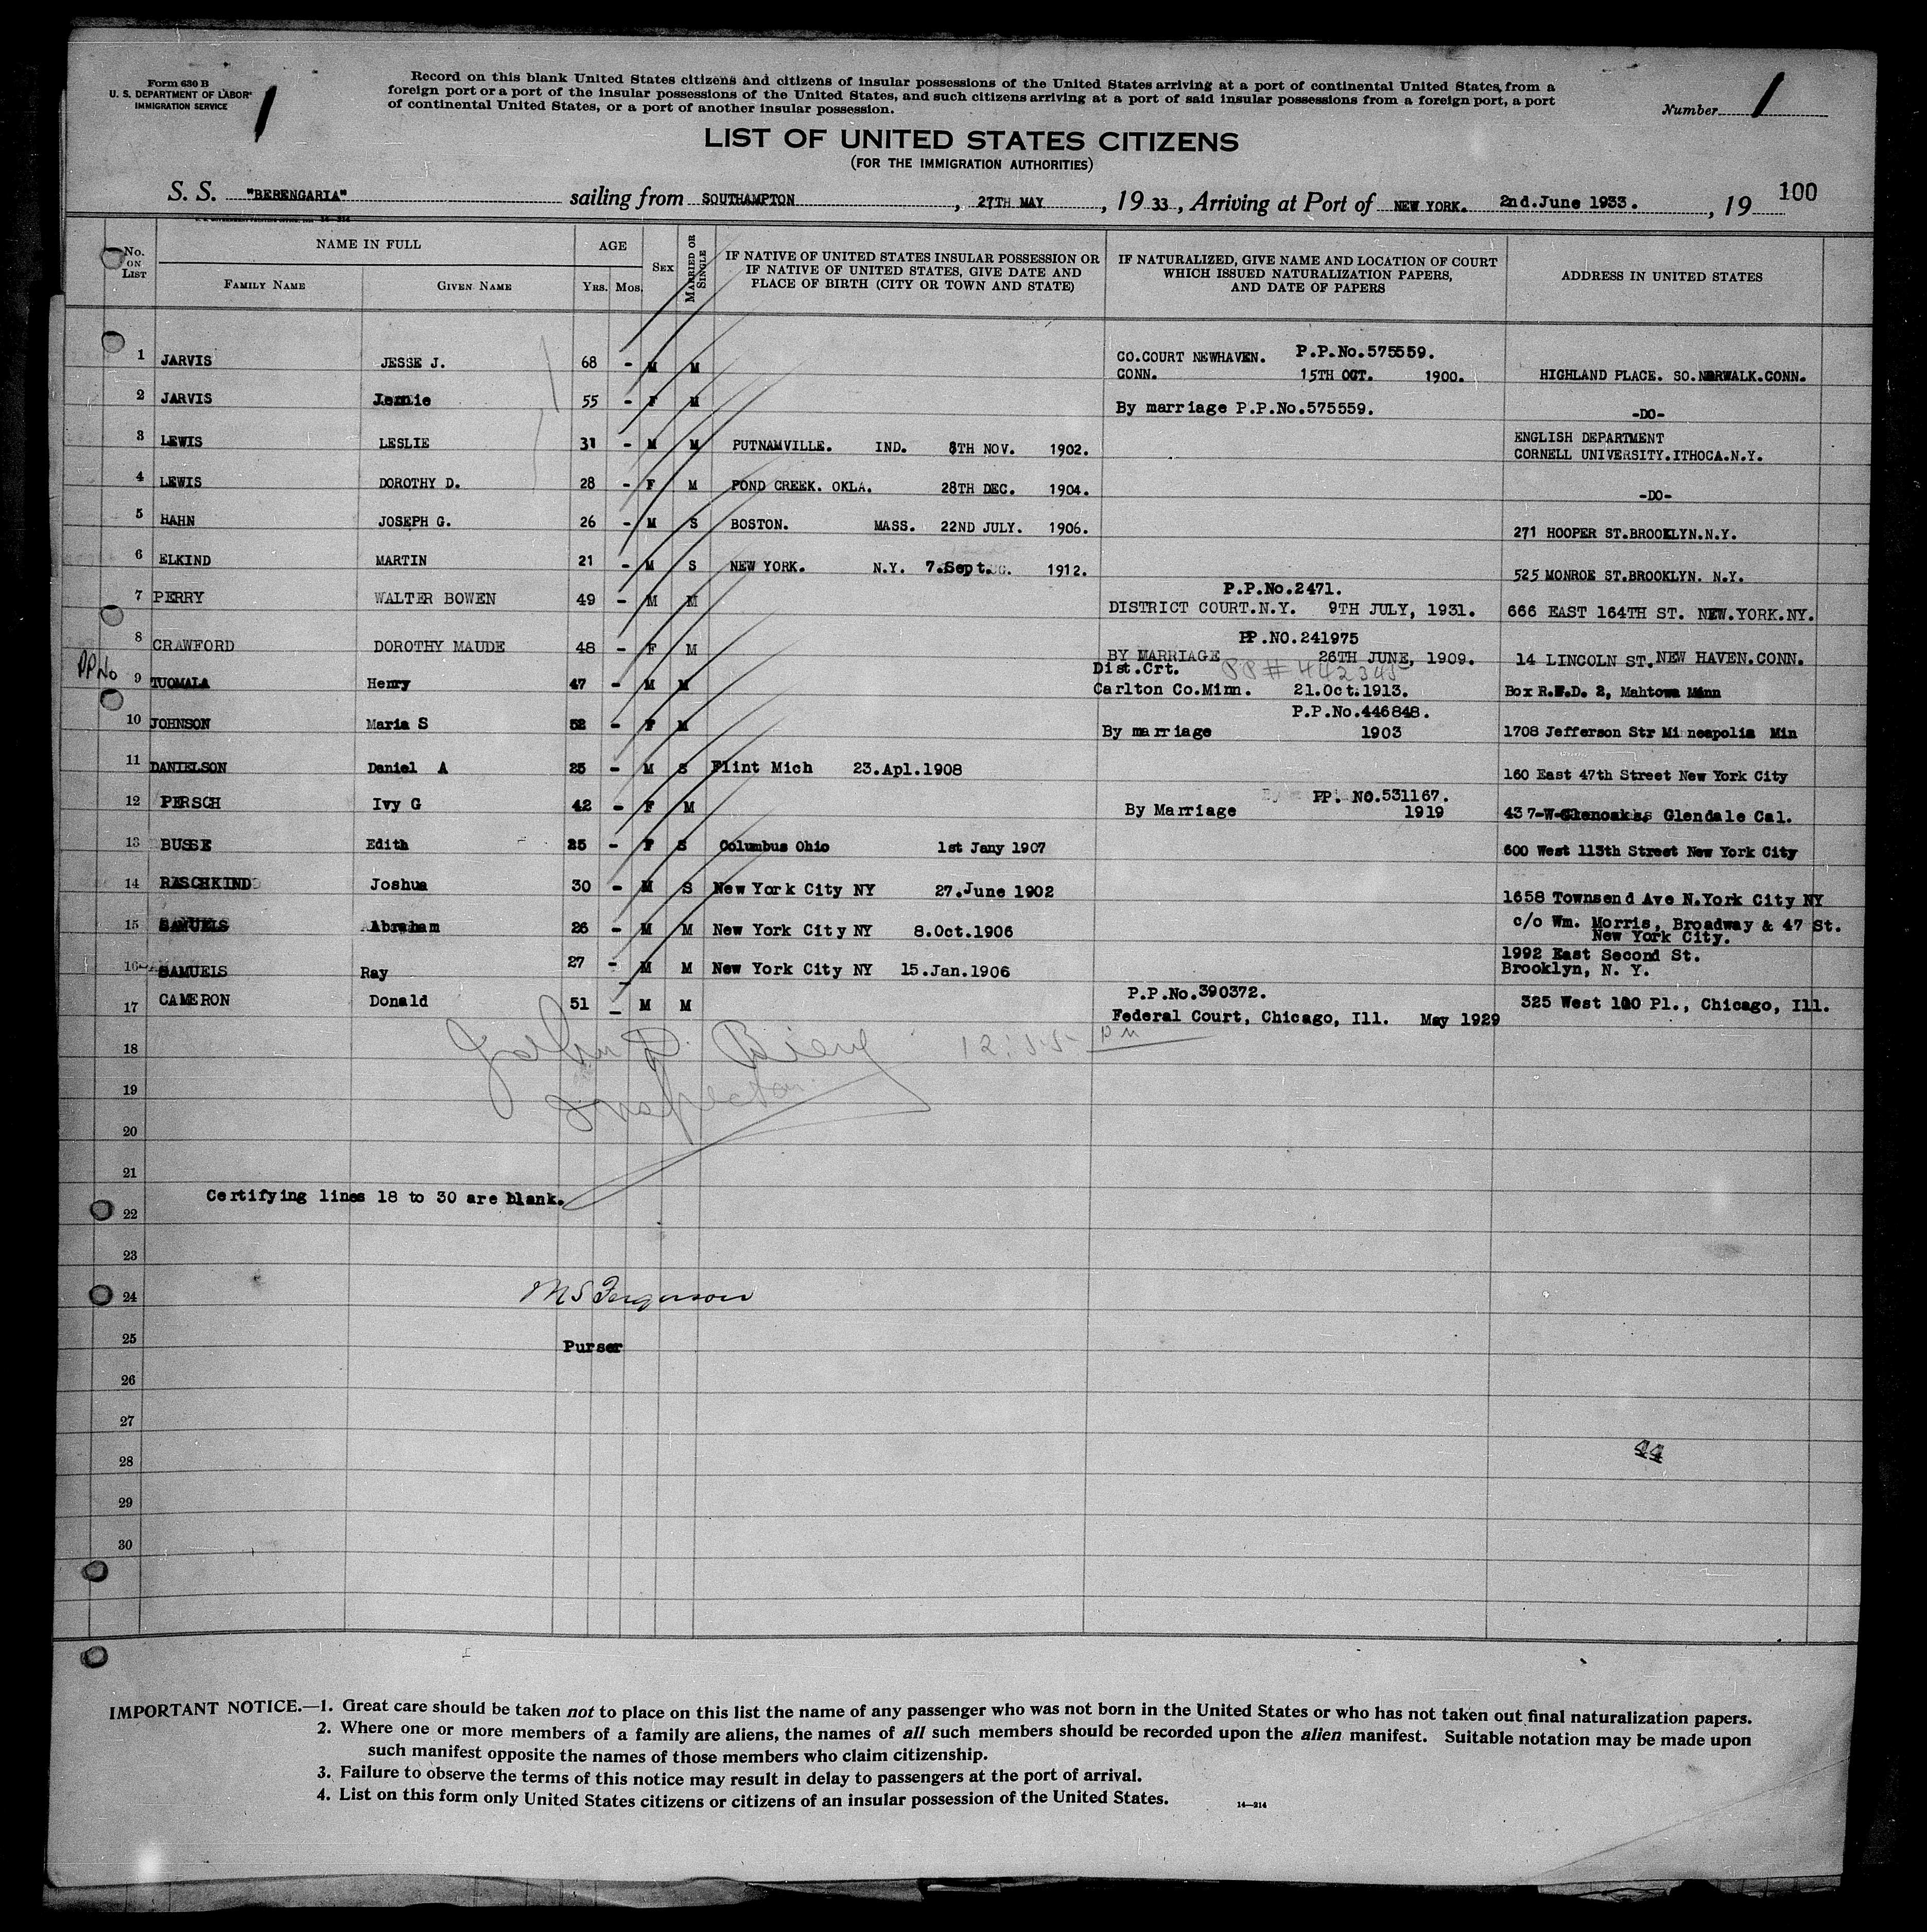 Form 630 B
U. S. DEPARTMENT OF LABOR
IMMIGRATION SERVICE
1
Record on this blank United States citizens and citizens of insular possessions of the United States arriving at a port of continental United States from a
foreign port or a port of the insular possessions of the United States, and such citizens arriving at a port of said insular possessions from a foreign port, a port
of continental United States, or a port of another insular possession.
Number 1
LIST OF UNITED STATES CITIZENS
(FOR THE IMMIGRATION AUTHORITIES)
100
S. S. "BERENGARIA" sailing from SOUTHAMPTON, 27TH MAY, 19 33, Arriving at Port of NEW YORK. 2nd.June 1933., 19
No. ON LIST NAME IN FULL AGE SEX MARRIED OR SINGLE IF NATIVE OF UNITED STATES INSULAR POSSESSION OR IF NATIVE OF UNITED STATES, GIVE DATE AND PLACE OF BIRTH (CITY OR TOWN AND STATE) IF NATURALIZED, GIVE NAME AND LOCATION OF COURT WHICH ISSUED NATURALIZATION PAPERS, AND DATE OF PAPERS ADDRESS IN UNITED STATES
FAMILY NAME GIVEN NAME Yrs. Mos.
1 JARVIS JESSE J. 68 - M M CO.COURT NEWHAVEN. P.P.No.575559.
CONN. 15TH OCT. 1900. HIGHLAND PLACE. SO.NORWALK.CONN.
2 JARVIS Jennie 55 - F M By marriage P.P.No.575559. -DO-
3 LEWIS LESLIE 31 - M M PUTNAMVILLE. IND. 8TH NOV. 1902. ENGLISH DEPARTMENT
CORNELL UNIVERSITY.ITHOCA.N.Y.
4 LEWIS DOROTHY D. 28 - F M POND CREEK. OKLA. 28TH DEC. 1904. -DO-
5 HAHN JOSEPH G. 26 - M S BOSTON. MASS. 22ND JULY. 1906. 271 HOOPER ST.BROOKLYN.N.Y.
6 ELKIND MARTIN 21 - M S NEW YORK. N.Y. 7.Sept. 1912. 525 MONROE ST.BROOKLYN. N.Y.
P.P.No.2471.
7 PERRY WALTER BOWEN 49 - M M DISTRICT COURT.N.Y. 9TH JULY, 1931. 666 EAST 164TH ST. NEW.YORK.NY.
PP.NO.241975
8 CRAWFORD DOROTHY MAUDE 48 - F M BY MARRIAGE 26TH JUNE, 1909. 14 LINCOLN ST. NEW HAVEN.CONN.
PP No
Dist.Crt. PP # 442345
9 TUOMALA Henry 47 - M M Carlton Co.Minn. 21.Oct.1913. Box R.F.D. 2, Mahtowa Minn
P.P.No.446848.
10 JOHNSON Maria S 52 - F M By marriage 1903 1708 Jefferson Str Mi neapolis Min
11 DANIELSON Daniel A 25 - M S Flint Mich 23.Apl.1908 160 East 47th Street New York City
PP. NO.531167.
12 PERSCH Ivy G 42 - F M By Marriage 1919 437-W-Glenoaks, Glendale Cal.
13 BUSSE Edith 25 - F S Columbus Ohio 1st Jany 1907 600 West 113th Street New York City
14 RASCHKIND Joshua 30 - M S New York City NY 27.June 1902 1658 Townsend Ave N.York City NY
15 SAMUELS Abraham 26 - M M New York City NY 8.Oct.1906 c/o Wm. Morris, Broadway & 47 St.
New York City.
16 SAMUELS Ray 27 - M M New York City NY 15.Jan.1906 1992 East Second St.
Brooklyn, N. Y.
P.P.No.390372.
17 CAMERON Donald 51 - M M Federal Court, Chicago, Ill. May 1929 325 West 100 Pl., Chicago, Ill.
18 John 12:55 PM
19 Inspector
20
21
Certifying lines 18 to 30 are blank.
22
23
24 M S Ferguson
25 Purser
26
27
28 44
29
30
IMPORTANT NOTICE.—1. Great care should be taken not to place on this list the name of any passenger who was not born in the United States or who has not taken out final naturalization papers.
2. Where one or more members of a family are aliens, the names of all such members should be recorded upon the alien manifest. Suitable notation may be made upon
such manifest opposite the names of those members who claim citizenship.
3. Failure to observe the terms of this notice may result in delay to passengers at the port of arrival.
4. List on this form only United States citizens or citizens of an insular possession of the United States.
14—214